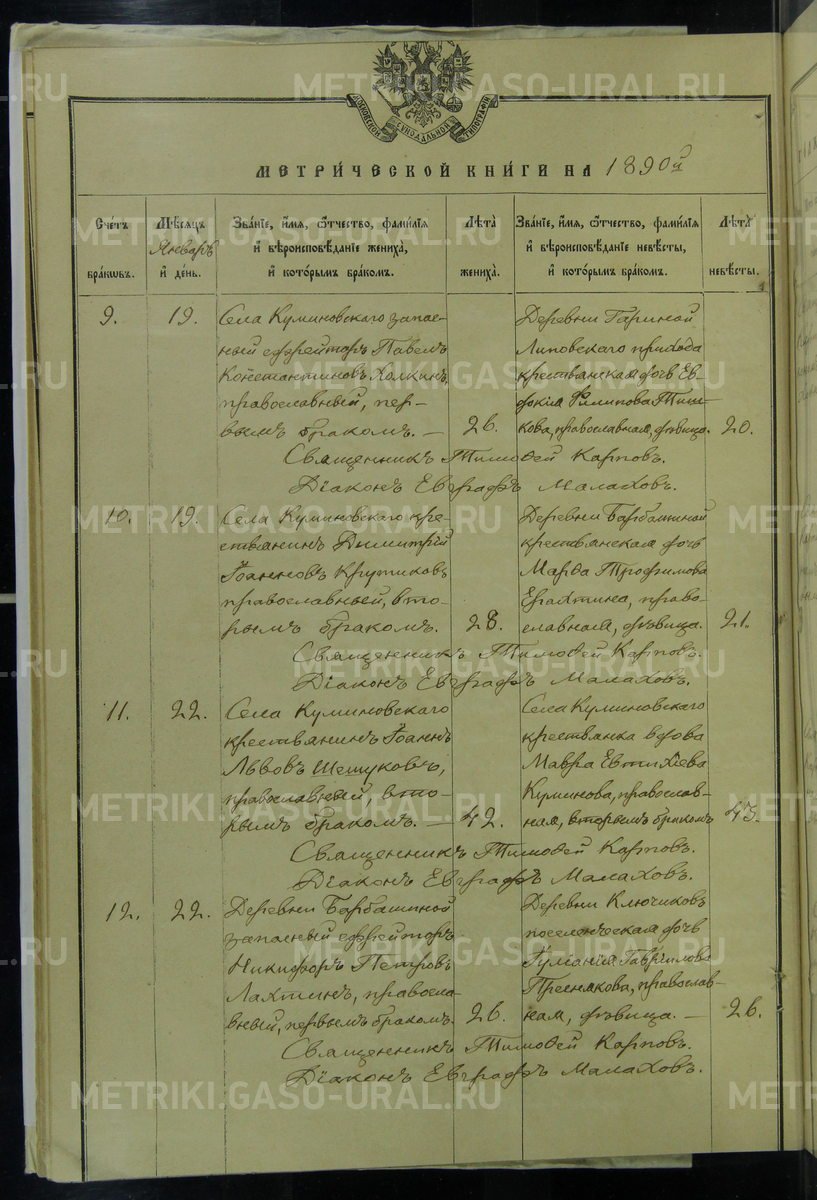 МОСКОВСКОЙ СѴНОДАЛЬНОЙ ТИПОГРАФІИ
МЕТРИ́ЧЕСКОЙ КНИ́ГИ НА 1890й
Сче́тъ бра́кѡвъ.
Мѣ́сяцъ Январь и҆ де́нь.
Зва́нїе, и҆́мя, ѻ҆́тчество, фамѝлїя и҆ вѣроисповѣ́данїе жениха̀, и҆ кото́рымъ бра́комъ.
Лѣта̀ жениха̀.
Зва́нїе, и҆́мя, ѻ҆́тчество, фамѝлїя и҆ вѣроисповѣ́данїе невѣ́сты, и҆ кото́рымъ бра́комъ.
Лѣта̀ невѣ́сты.
9. 19.
Села Куминовскаго запас-
ный ефрейторъ Павелъ
Константиновъ Халкинъ,
православный, пер-
вымъ бракомъ. — 26.
Деревни Гариной
Липовскаго прихода
крестьянская дочь Ев-
докія Филипова Тиш-
кова, православная, дѣвица. 20.
Священникъ Тимоѳей Карповъ.
Діаконъ Евграфъ Малаховъ.
10. 19.
Села Куминовскаго кре-
стьянинъ Димитрій
Іоанновъ Крутиковъ
православный, вто-
рымъ бракомъ. 28.
Деревни Барбашиной
крестьянская дочь
Марѳа Трофимова
Ерахтина, право-
славная, дѣвица. 21.
Священникъ Тимоѳей Карповъ.
Діаконъ Евграфъ Малаховъ.
11. 22.
Села Куминовскаго
крестьянинъ Іоаннъ
Львовъ Шешуковъ,
православный, вто-
рымъ бракомъ. — 42.
Села Куминовскаго
крестьянка вдова
Мавра Евтихіева
Куминова, православ-
ная, вторымъ бракомъ 43.
Священникъ Тимоѳей Карповъ.
Діаконъ Евграфъ Малаховъ.
12. 22.
Деревни Барбашиной
запасный ефрейторъ
Никифоръ Петровъ
Лахтинъ, правосла-
вный, первымъ бракомъ. 26.
Деревни Ключиковъ
поселенческая дочь
Іуліанія Гавріилова
Преснякова, православ-
ная, дѣвица. — 26.
Священникъ Тимоѳей Карповъ.
Діаконъ Евграфъ Малаховъ.
METRIKI.GASO-URAL.RU